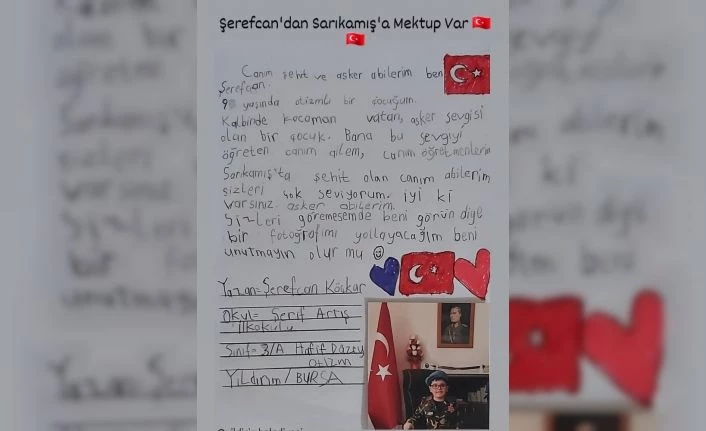 Şerefcan'dan Sarıkamış'a Mektup Var
Canım şehit ve asker abilerim ben
Şerefcan.
9 yaşında otizmli bir çocuğum.
Kalbinde kocaman vatan, asker sevgisi
olan bir çocuk. Bana bu sevgiyi
öğreten canım ailem, canım öğretmenlerim
Sarıkamış'ta şehit olan canım abilerim
sizleri çok seviyorum. iyi ki
varsınız. asker abilerim.
Sizleri göremesemde beni görün diye
bir fotoğrafımı yollayacağım beni
unutmayın olur mu
Yazan=Şerefcan Köşkar
Okul= Şerif Artış
ilkokulu
Sınıf= 3/A Hafif Düzey
otizm
Yıldırım/BURSA